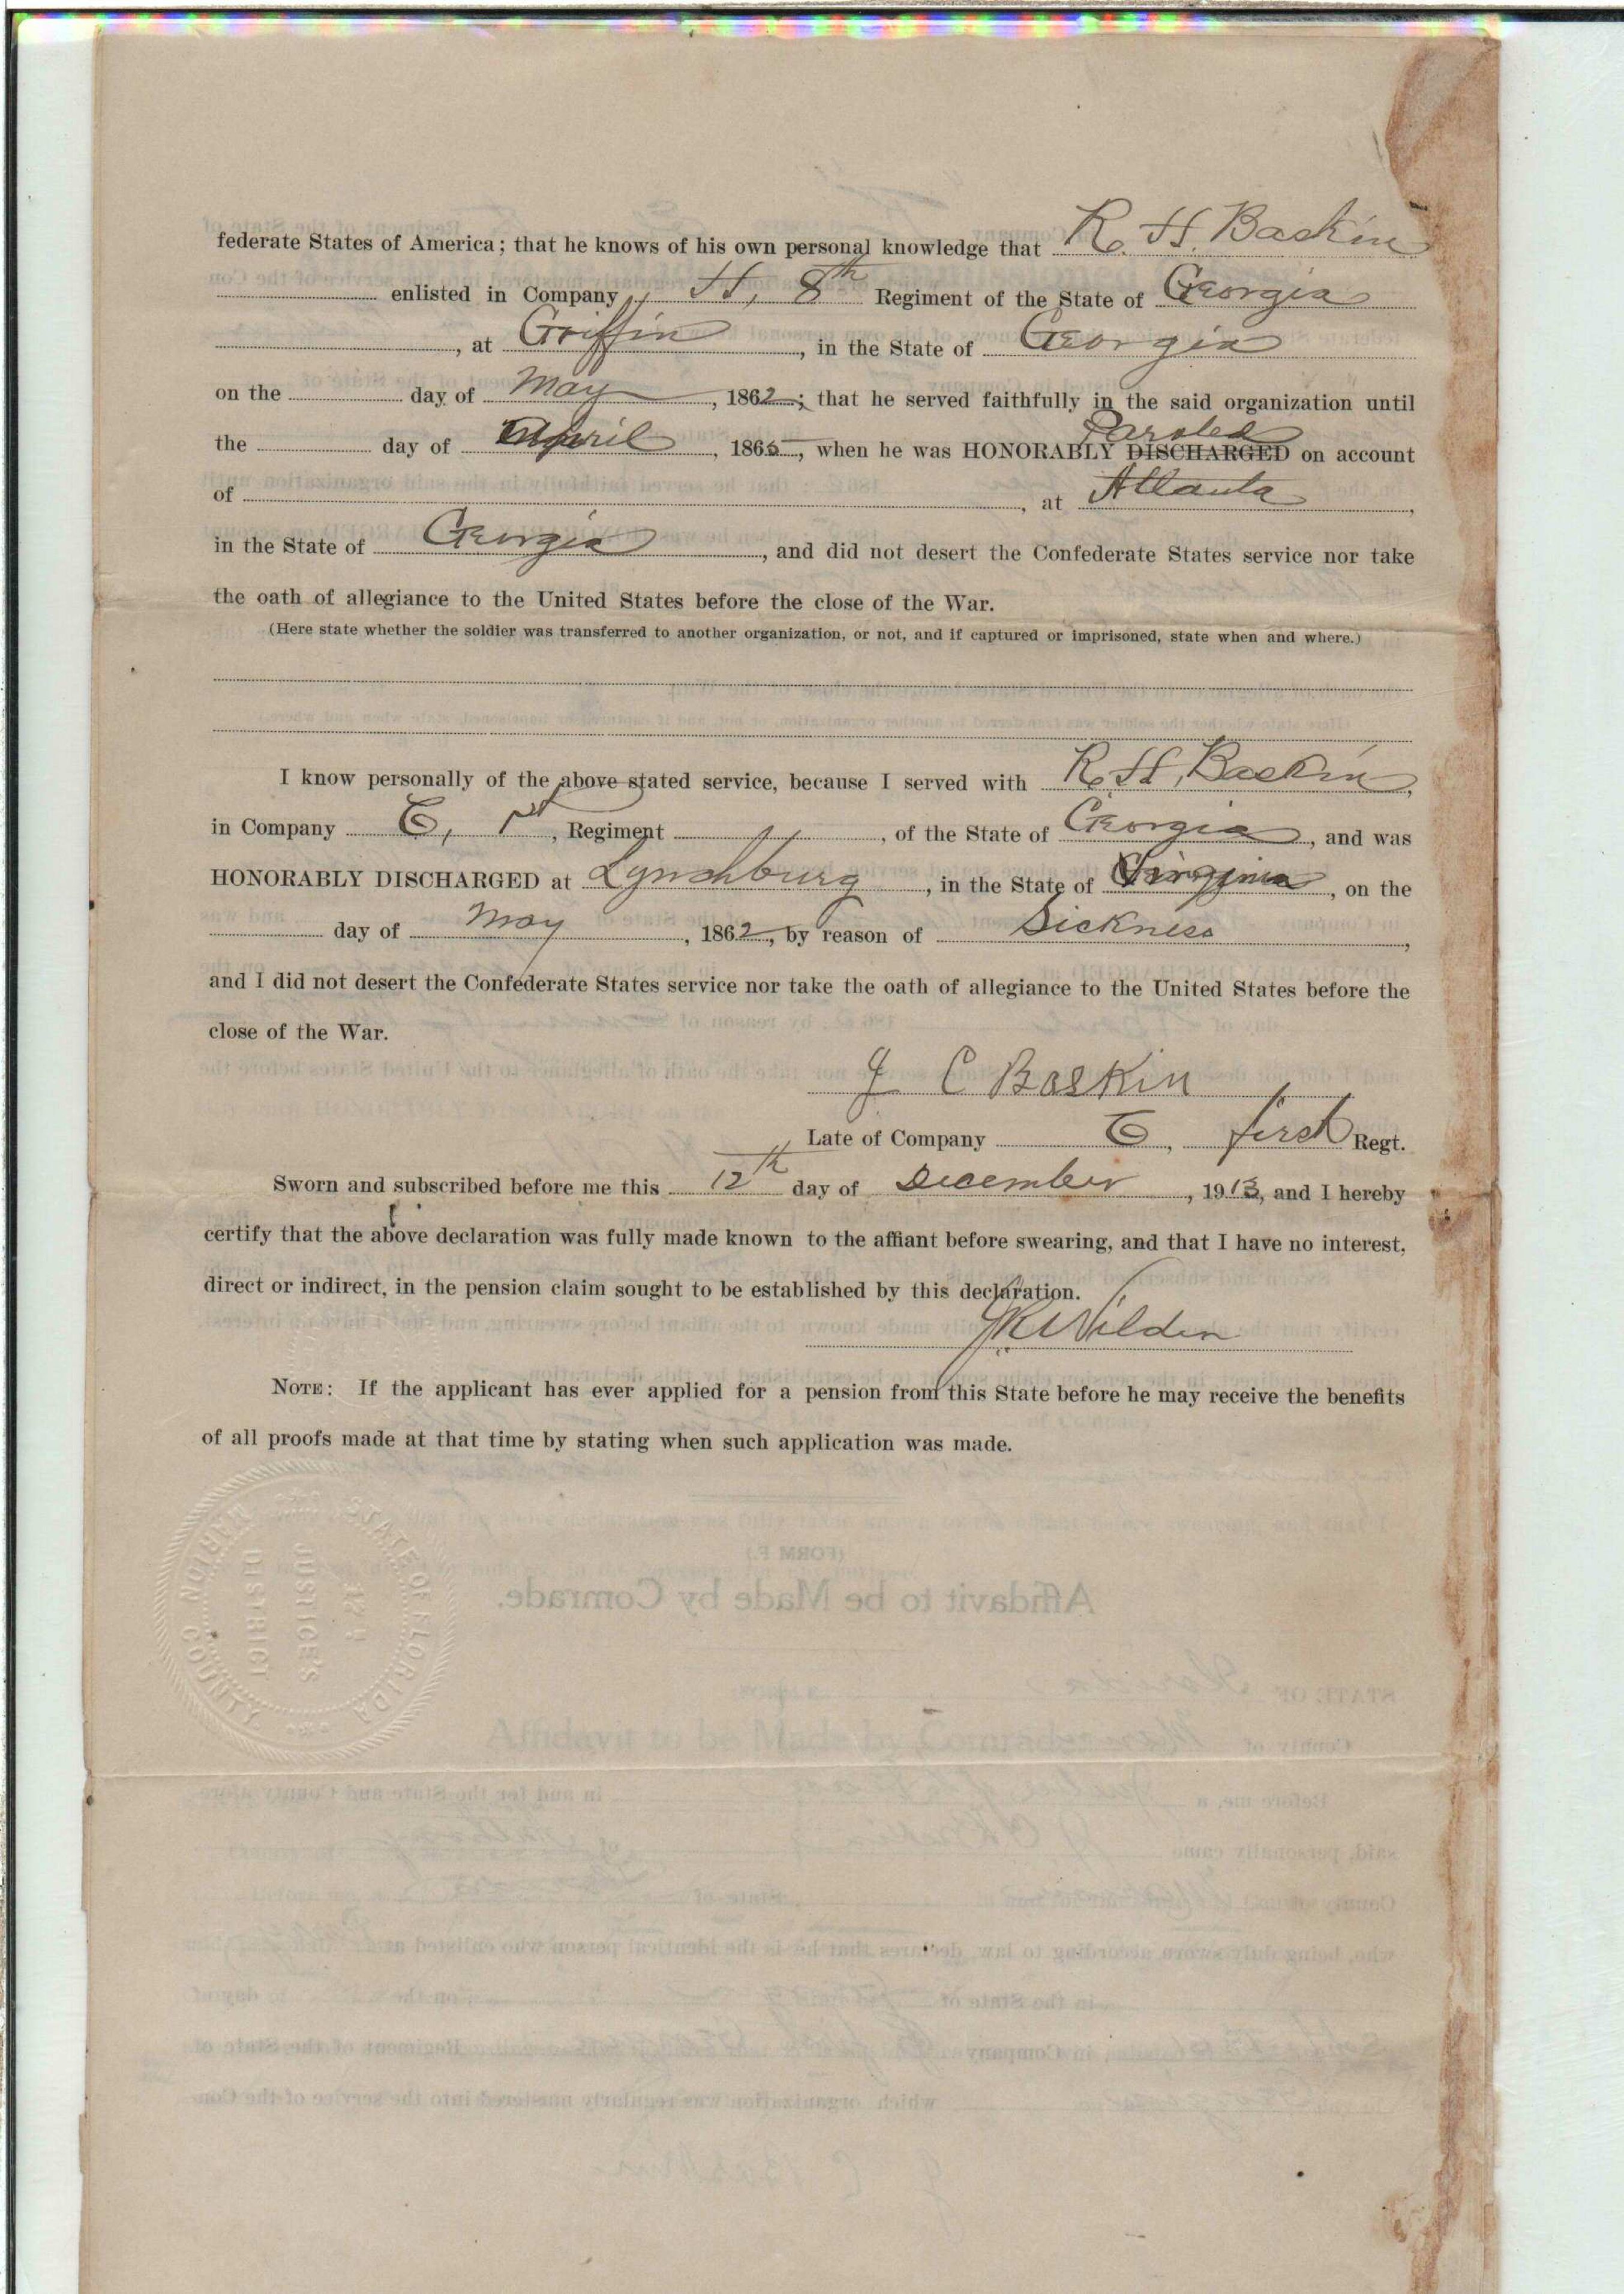 federate States of America; that he knows of his own personal knowledge that R. H. Baskin
enlisted in Company H, 8th Regiment of the State of Georgia
, at Griffin, in the State of Georgia
on the day of May, 1862; that he served faithfully in the said organization until
the day of April, 1865, when he was HONORABLY DISCHARGED Paroled on account
of , at Atlanta,
in the State of Georgia, and did not desert the Confederate States service nor take
the oath of allegiance to the United States before the close of the War.
(Here state whether the soldier was transferred to another organization, or not, and if captured or imprisoned, state when and where.)
I know personally of the above-stated service, because I served with R. H. Baskin,
in Company , Regiment , of the State of Georgia, and was
HONORABLY DISCHARGED at Lynchburg, in the State of Virginia, on the
day of May, 1862, by reason of Sickness,
and I did not desert the Confederate States service nor take the oath of allegiance to the United States before the
close of the War.
J C Baskin
Late of Company first Regt.
Sworn and subscribed before me this 12th day of December, 1913, and I hereby
certify that the above declaration was fully made known to the affiant before swearing, and that I have no interest,
direct or indirect, in the pension claim sought to be established by this declaration.
NOTE: If the applicant has ever applied for a pension from this State before he may receive the benefits
of all proofs made at that time by stating when such application was made.
STATE OF FLORIDA
JUSTICE'S
DISTRICT
MARION COUNTY
(FORM F.)
Affidavit to be Made by Comrade.
STATE OF Florida
County of Marion
Before me, a in and for the State and County afore
said, personally came
County of State of
who, being duly sworn according to law, declares that he is the identical person who enlisted at
in the State of on the day of
in Company Regiment of the State of
which organization was regularly mustered into the service of the Con